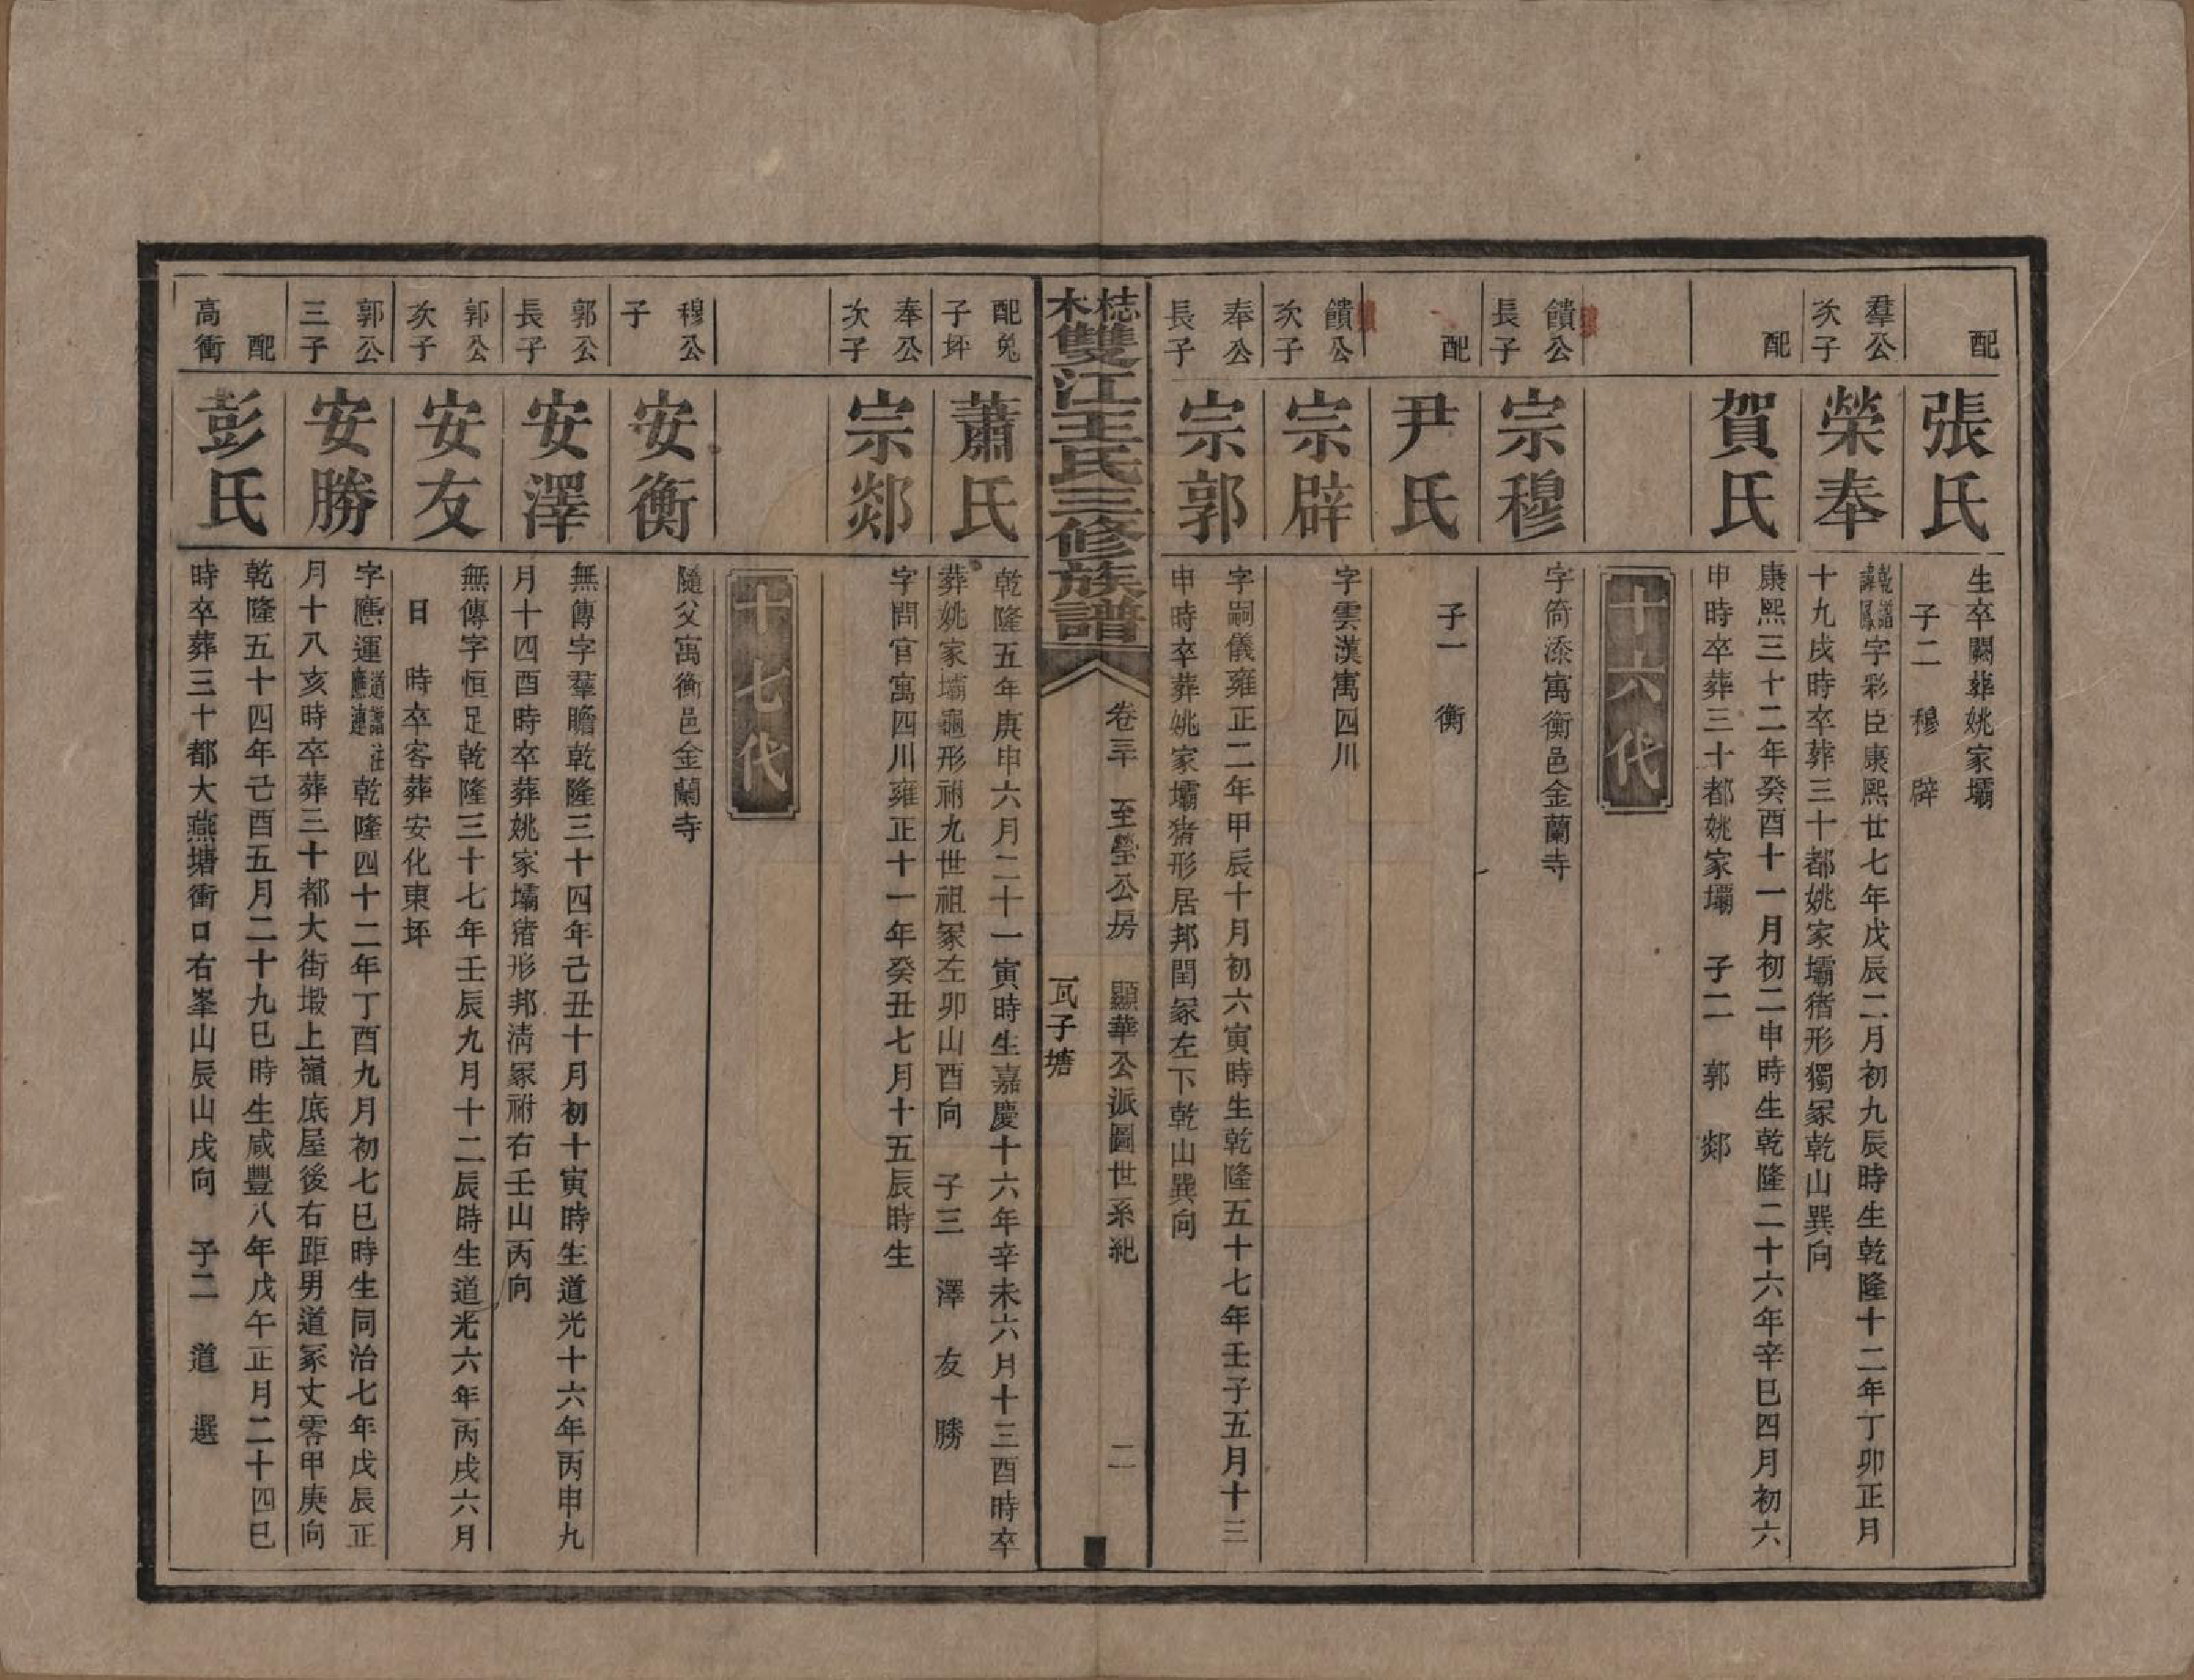 配
張氏
生卒闕葬姚家壩
子二　穆　辟
羣公
次子
榮奉
乾譜
諱鳳字彩臣康熙廿七年戊辰二月初九辰時生乾隆十二年丁卯正月
十九戌時卒葬三十都姚家壩猪形獨冢乾山巽向
配
賀氏
康熙三十二年癸酉十一月初二申時生乾隆二十六年辛巳四月初六
申時卒葬三十都姚家壩　子二　郭　郯
十六代
饋公
長子
宗穆
字筒添寓衡邑金蘭寺
配
尹氏
子一　衡
饋公
次子
宗辟
字雲漢寓四川
奉公
長子
宗郭
字嗣儀雍正二年甲辰十月初六寅時生乾隆五十七年壬子五月十三
申時卒葬姚家壩猪形居邦閏冢左下乾山巽向
梽木
雙江王氏三修族譜
卷三十　至瑩公房　顯華公派圖世系紀　二
瓦子塘
配兔
子坪
蕭氏
乾隆五年庚申六月二十一寅時生嘉慶十六年辛未六月十三酉時卒
葬姚家壩龜形祔九世祖冢左卯山酉向　子三　澤　友　勝
奉公
次子
宗郯
字問官寓四川雍正十一年癸丑七月十五辰時生
十七代
穆公
子
安衡
隨父寓衡邑金蘭寺
郭公
長子
安澤
無傳字羣瞻乾隆三十四年己丑十月初十寅時生道光十六年丙申九
月十四酉時卒葬姚家壩猪形邦淸冢祔右壬山丙向
郭公
次子
安友
無傳字恒足乾隆三十七年壬辰九月十二辰時生道光六年丙戌六月
日　時卒客葬安化東坪
郭公
三子
安勝
字應運道譜註
應連乾隆四十二年丁酉九月初七巳時生同治七年戊辰正
月十八亥時卒葬三十都大街塅上嶺底屋後右距男道冢丈零甲庚向
配
高衝
彭氏
乾隆五十四年己酉五月二十九巳時生咸豐八年戊午正月二十四巳
時卒葬三十都大燕塘衝口右峯山辰山戌向　子二　道　選